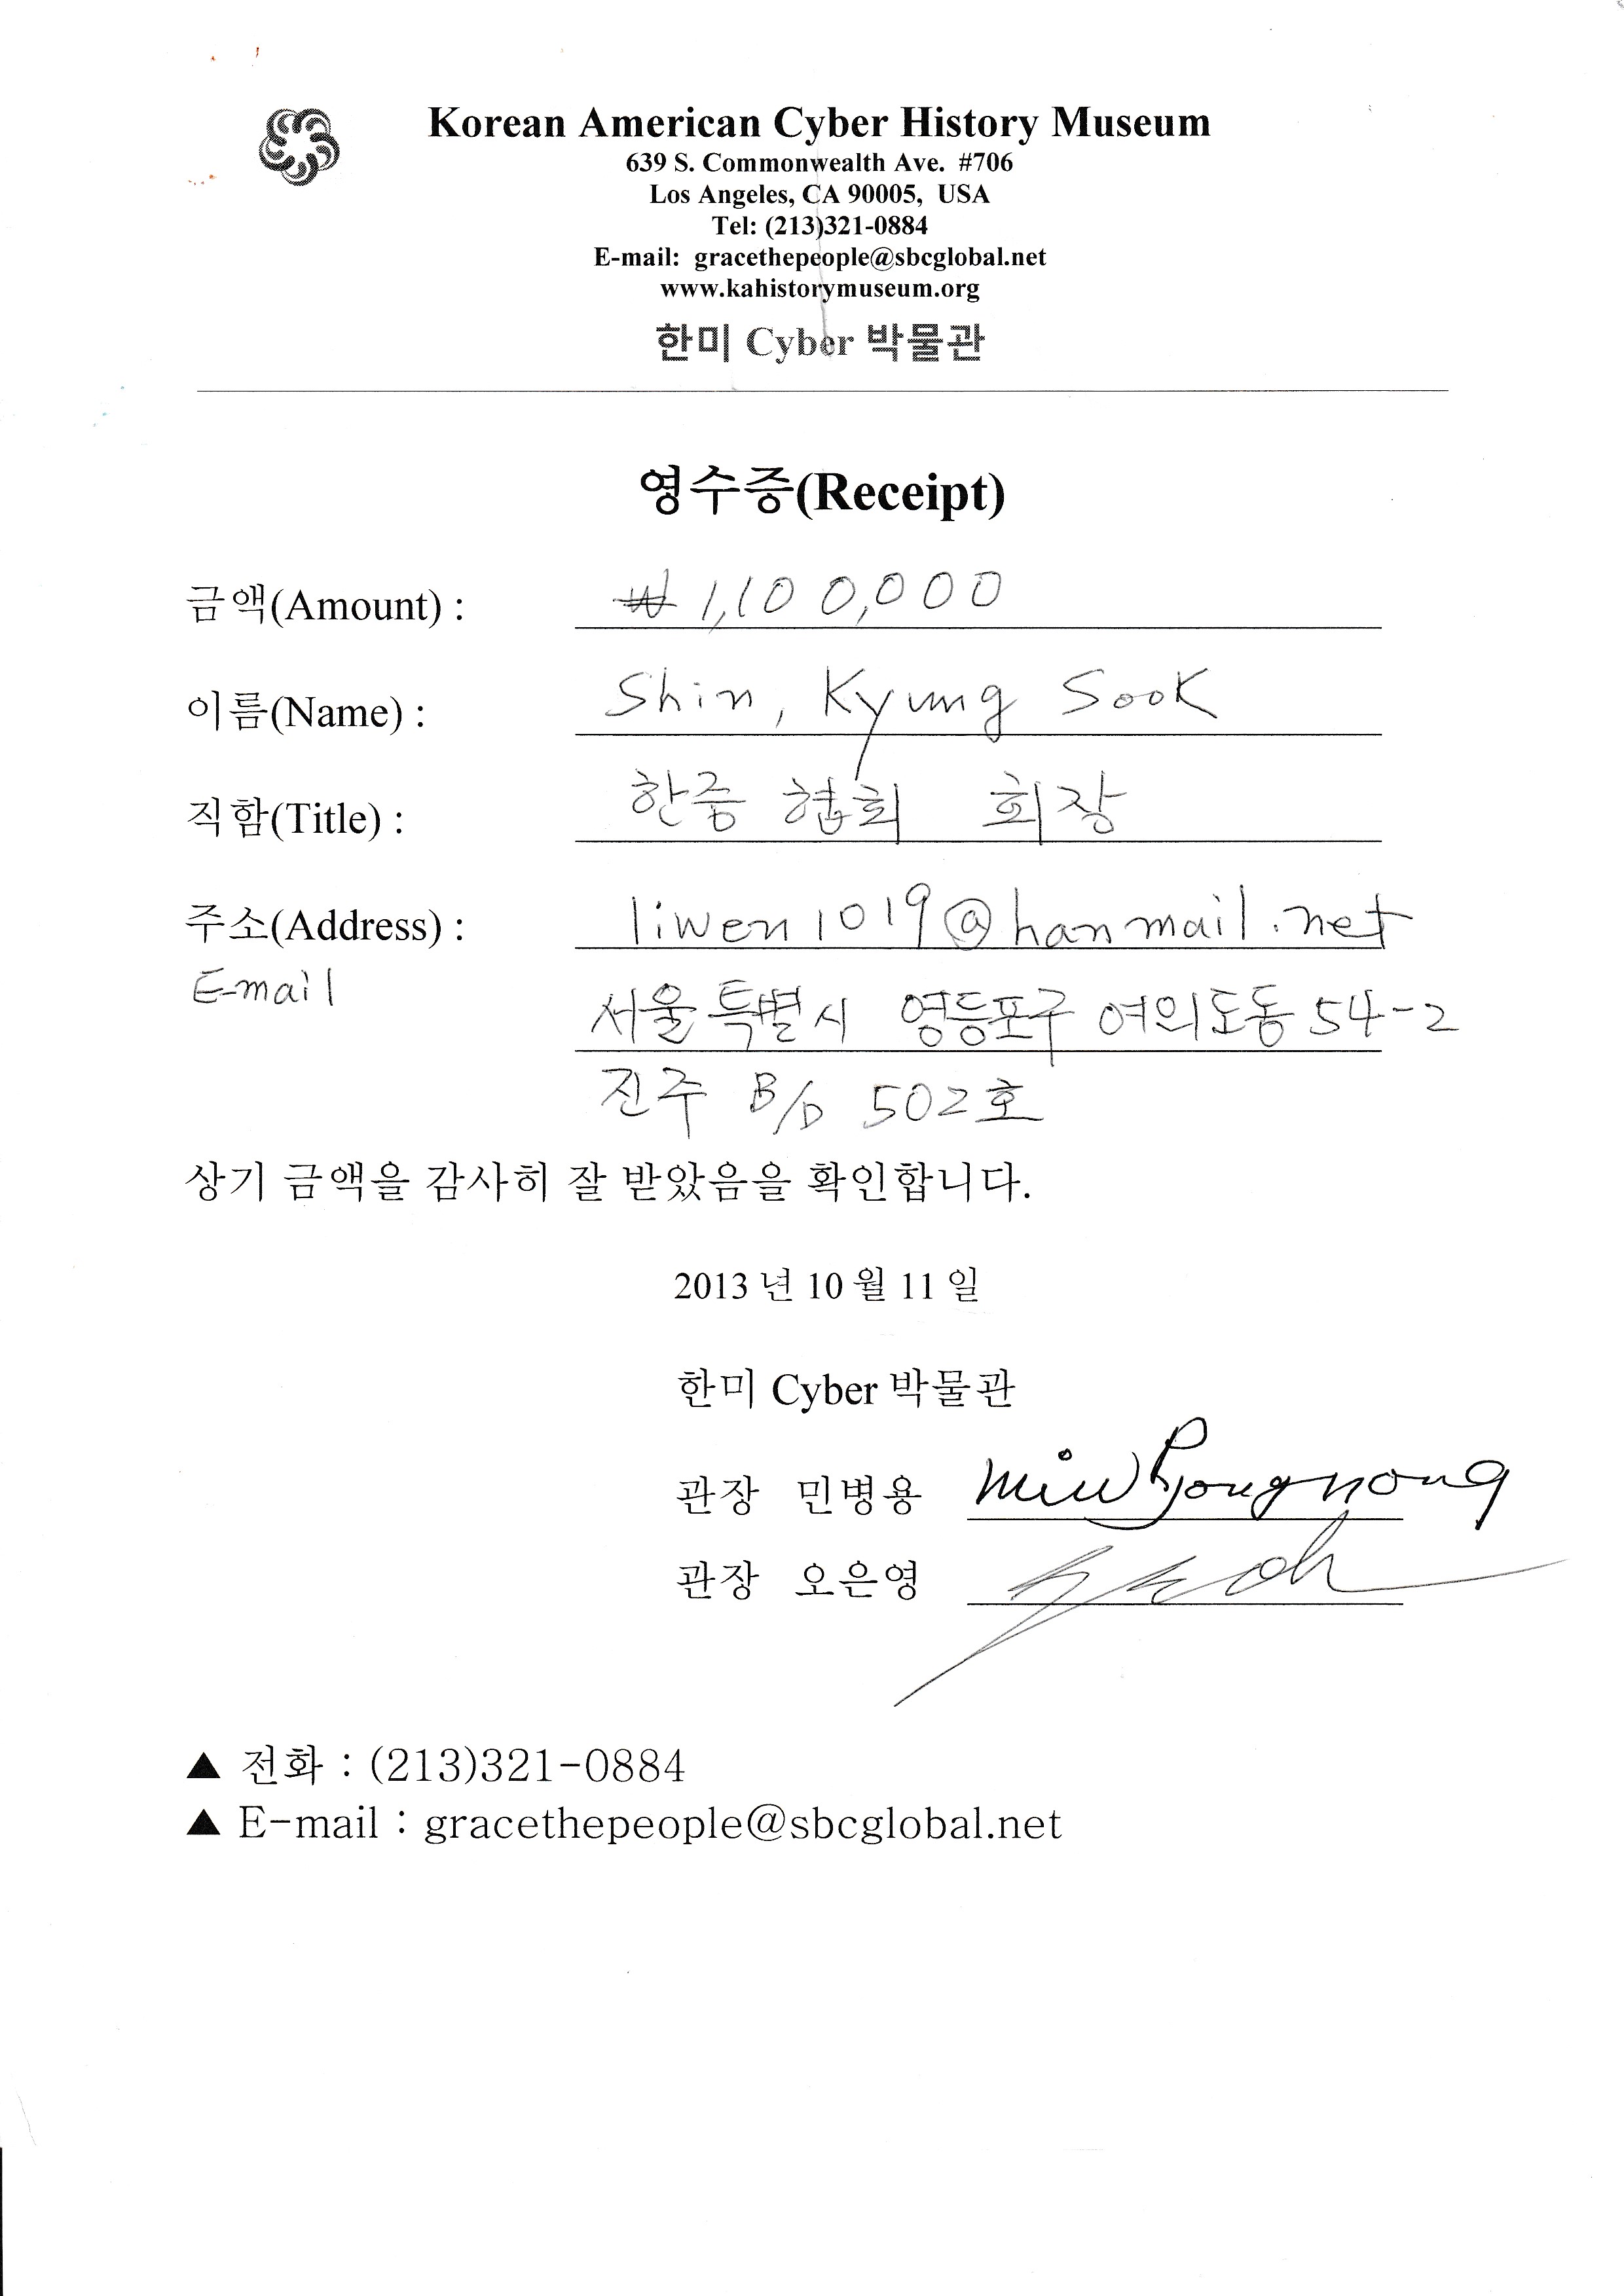 Korean American Cyber History Museum
639 S. Commonwealth Ave. #706
Los Angeles, CA 90005, USA
Tel: (213)321-0884
E-mail: gracethepeople@sbcglobal.net
www.kahistorymuseum.org
한미 Cyber 박물관
영수증(Receipt)
금액(Amount) : ₩ 1,100,000
이름(Name) : Shin, Kyung Sook
직함(Title) : 한중 협회 회장
주소(Address) : liwen1019@hanmail.net
E-mail 서울특별시 영등포구 여의도동 54-2
진주 B/D 502호
상기 금액을 감사히 잘 받았음을 확인합니다.
2013 년 10 월 11 일
한미 Cyber 박물관
관장 민병용
관장 오은영
▲ 전화 : (213)321-0884
▲ E-mail : gracethepeople@sbcglobal.net